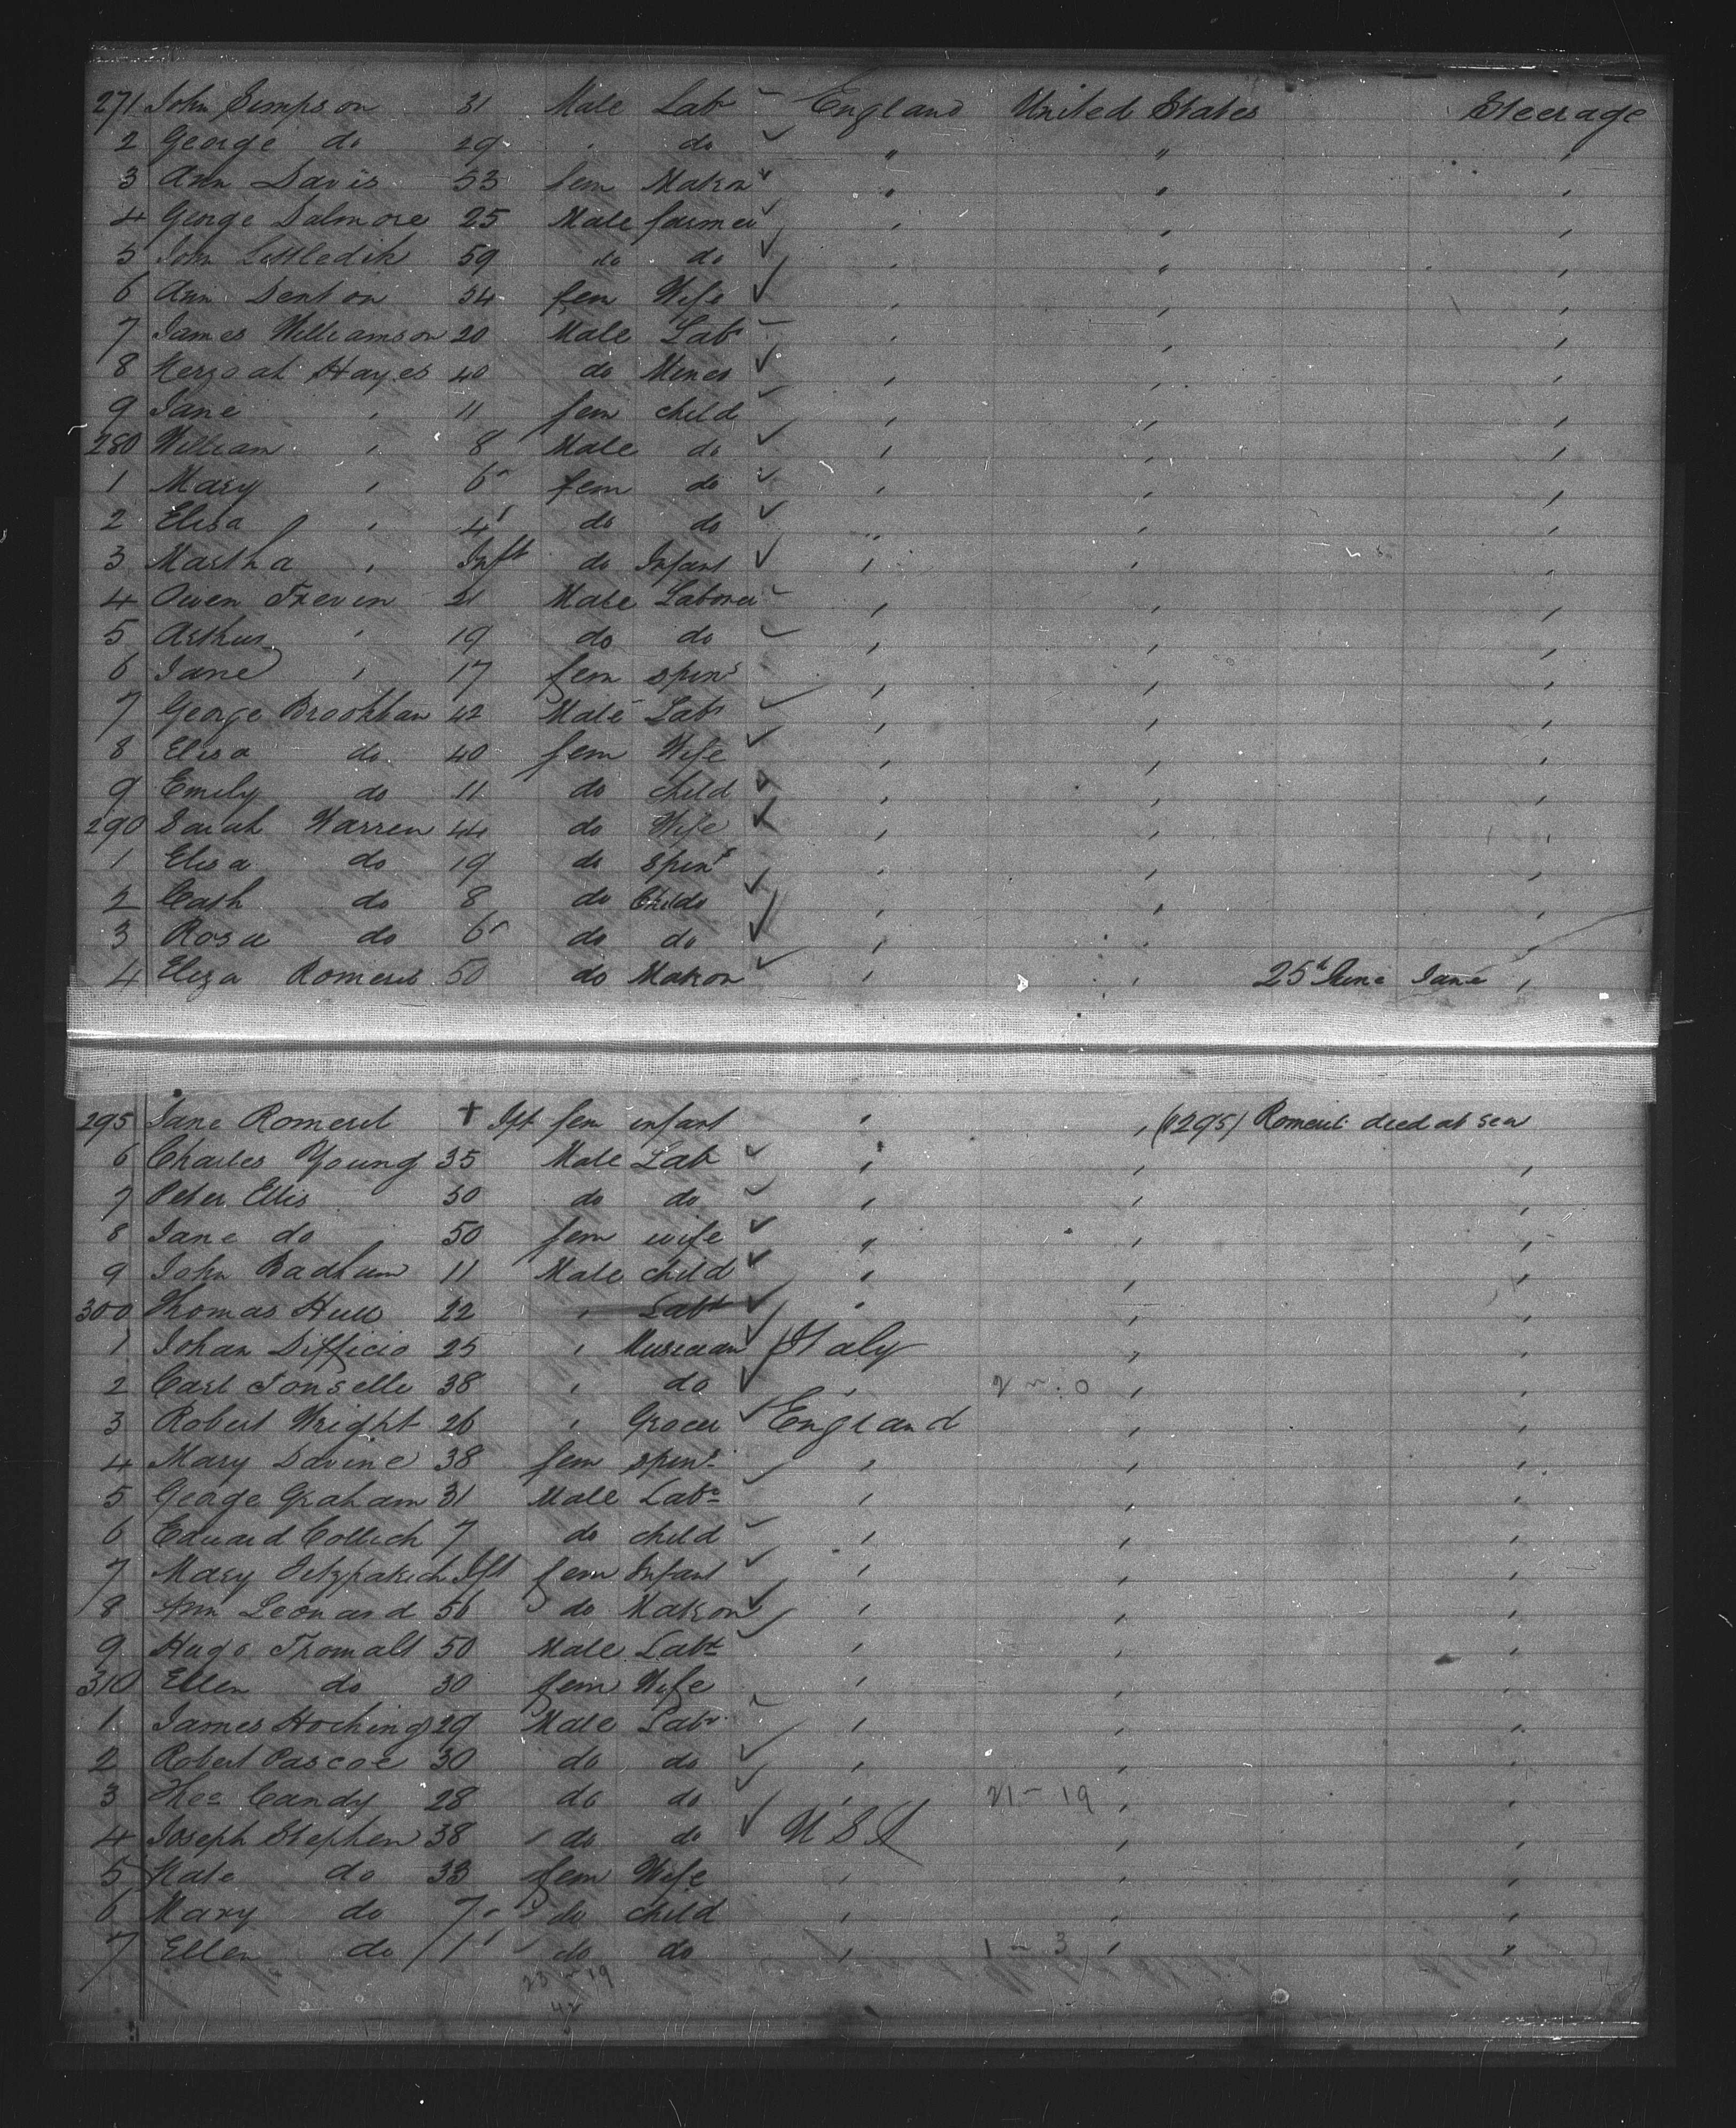 271 John Simpson 31 Male Lab England United States Steerage
2 George do 29 " do " " "
3 Ann Davis 53 fem Matron " " "
4 George Dalmore 25 Male farmer " " "
5 John 59 do do " " "
6 Ann Denton 34 fem Wife " " "
7 James Williamson 20 Male Lab " " "
8 Hayes 40 do Miner " " "
9 Jane " 11 fem child " " "
280 William " 8 Male do " " "
1 Mary " 6 fem do " " "
2 Elisa " 4 do do " " "
3 Martha " Inft do Infant " " "
4 Owen Trevin 21 Male Laborer " " "
5 Arthur " 19 do do " " "
6 Jane " 17 fem spins " " "
7 George Brookban 42 Male Lab " " "
8 Elisa do 40 fem Wife " " "
9 Emily do 11 do child " " "
290 Sarah Warren 44 do Wife " " "
1 Elisa do 19 do spins " " "
2 Cath do 8 do Childs " " "
3 Rosa do 6 do do " " "
4 Eliza Romeril 50 do Matron " " 25th June Jane "
295 Jane Romeril + Ift fem infant " " (295) Romeril died at sea
6 Charles Young 35 Male Lab " " "
7 Peter Ellis 50 do do " " "
8 Jane do 50 fem wife " " "
9 John Badham 11 Male child " " "
300 Thomas Hull 22 " Labr " " "
1 Johan Difficio 25 " Musician Italy " "
2 Carl Tonselle 38 " do " " "
3 Robert Wright 26 " Grocer England " "
4 Mary Davine 38 fem spins " " "
5 Geoge Graham 31 Male Labr " " "
6 Edward Collich 7 do child " " "
7 Mary Fitzpatrich Ift fem Infant " " "
8 Ann Leonard 56 do Matron " " "
9 Hugo Tromalt 50 Male Labr " " "
310 Ellen do 30 fem Wife " " "
1 James Hocking 29 Male Labr " " "
2 Robert Pascoe 30 do do " " "
3 Thos Candy 28 do do " 21 - 19 " "
4 Joseph Stephen 38 do do U S A " "
5 Kate do 33 fem Wife " " "
6 Mary do 7 do child " " "
7 Ellen do 1 do do " 1 - 3 " "
23 - 19
42